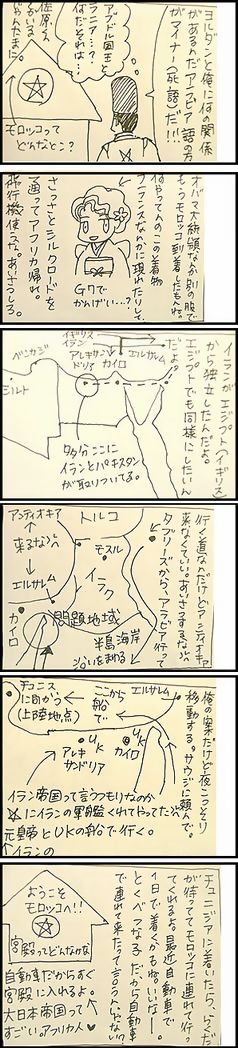 ヨルダンと俺に何の関係
があるんだアラビア語の方
がマイナー(死語)だ!!!
アブドル国王と
ラニア…?
何だそれは…
佐原くん
モロッコって
どんなとこ?
オバマ大統領なんか別の服で
もうモロッコ到着したもんね。
何やってんのこの着物
フランスなんかに現れたりして。
G7で
かんぱい…?
さっさとシルクロードを
通ってアフリカ帰れ。
飛行機使うな。あいさつしろ。
イランがエジプト(イギリス)
から独立したんだよ。
エジプトでも同様にしたいん
だよ。
イギリス
イラン
アレキサン
ドリア
カイロ
エルサレム
ベンガジ
シルト
多分ここに
イランとパキスタン
が取りついてよ。
行く道なんだけどアンティオキア
来なくていい。あいさつするな。
タブリーズから、アラビア行って
アンティオキア
トルコ
来るな
モスル
イラク
エルサレム
カイロ
問題地域
半島海岸
沿いをまわる
俺の案だけど夜こっそり
移動する。サウジに頼んで。
エルサレム
ここから
船で
チュニス
に向かう
(上陸地点)
UK
アレキ
サンドリア
UK
カイロ
イラン帝国って言うつもりなのか
にイランの軍艦くれてやってた
元皇帝とUKの船で行く。
↑イランの
チュニジアに着いたら、らくだ
が待っててモロッコに連れて行っ
てくれるよ。最近自動車で
1日で着くかもね。いいなー。
とくべつな子だから自動車
で連れて来たって言うんじゃない?
ようこそ
モロッコへ!!
宮殿ってどんなかな
自動車だからすぐ
宮殿に入れるよ。
大日本帝国って
すごい。アフリカ人♥